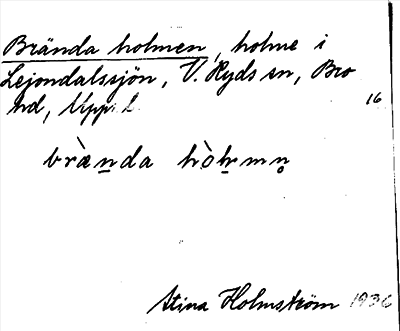 Brända holmen, holme i
Lejondalssjön, V. Ryds sn, Bro
hd, Uppl.
16
bræ̀nda hòhmn̥
Stina Holmström 1936